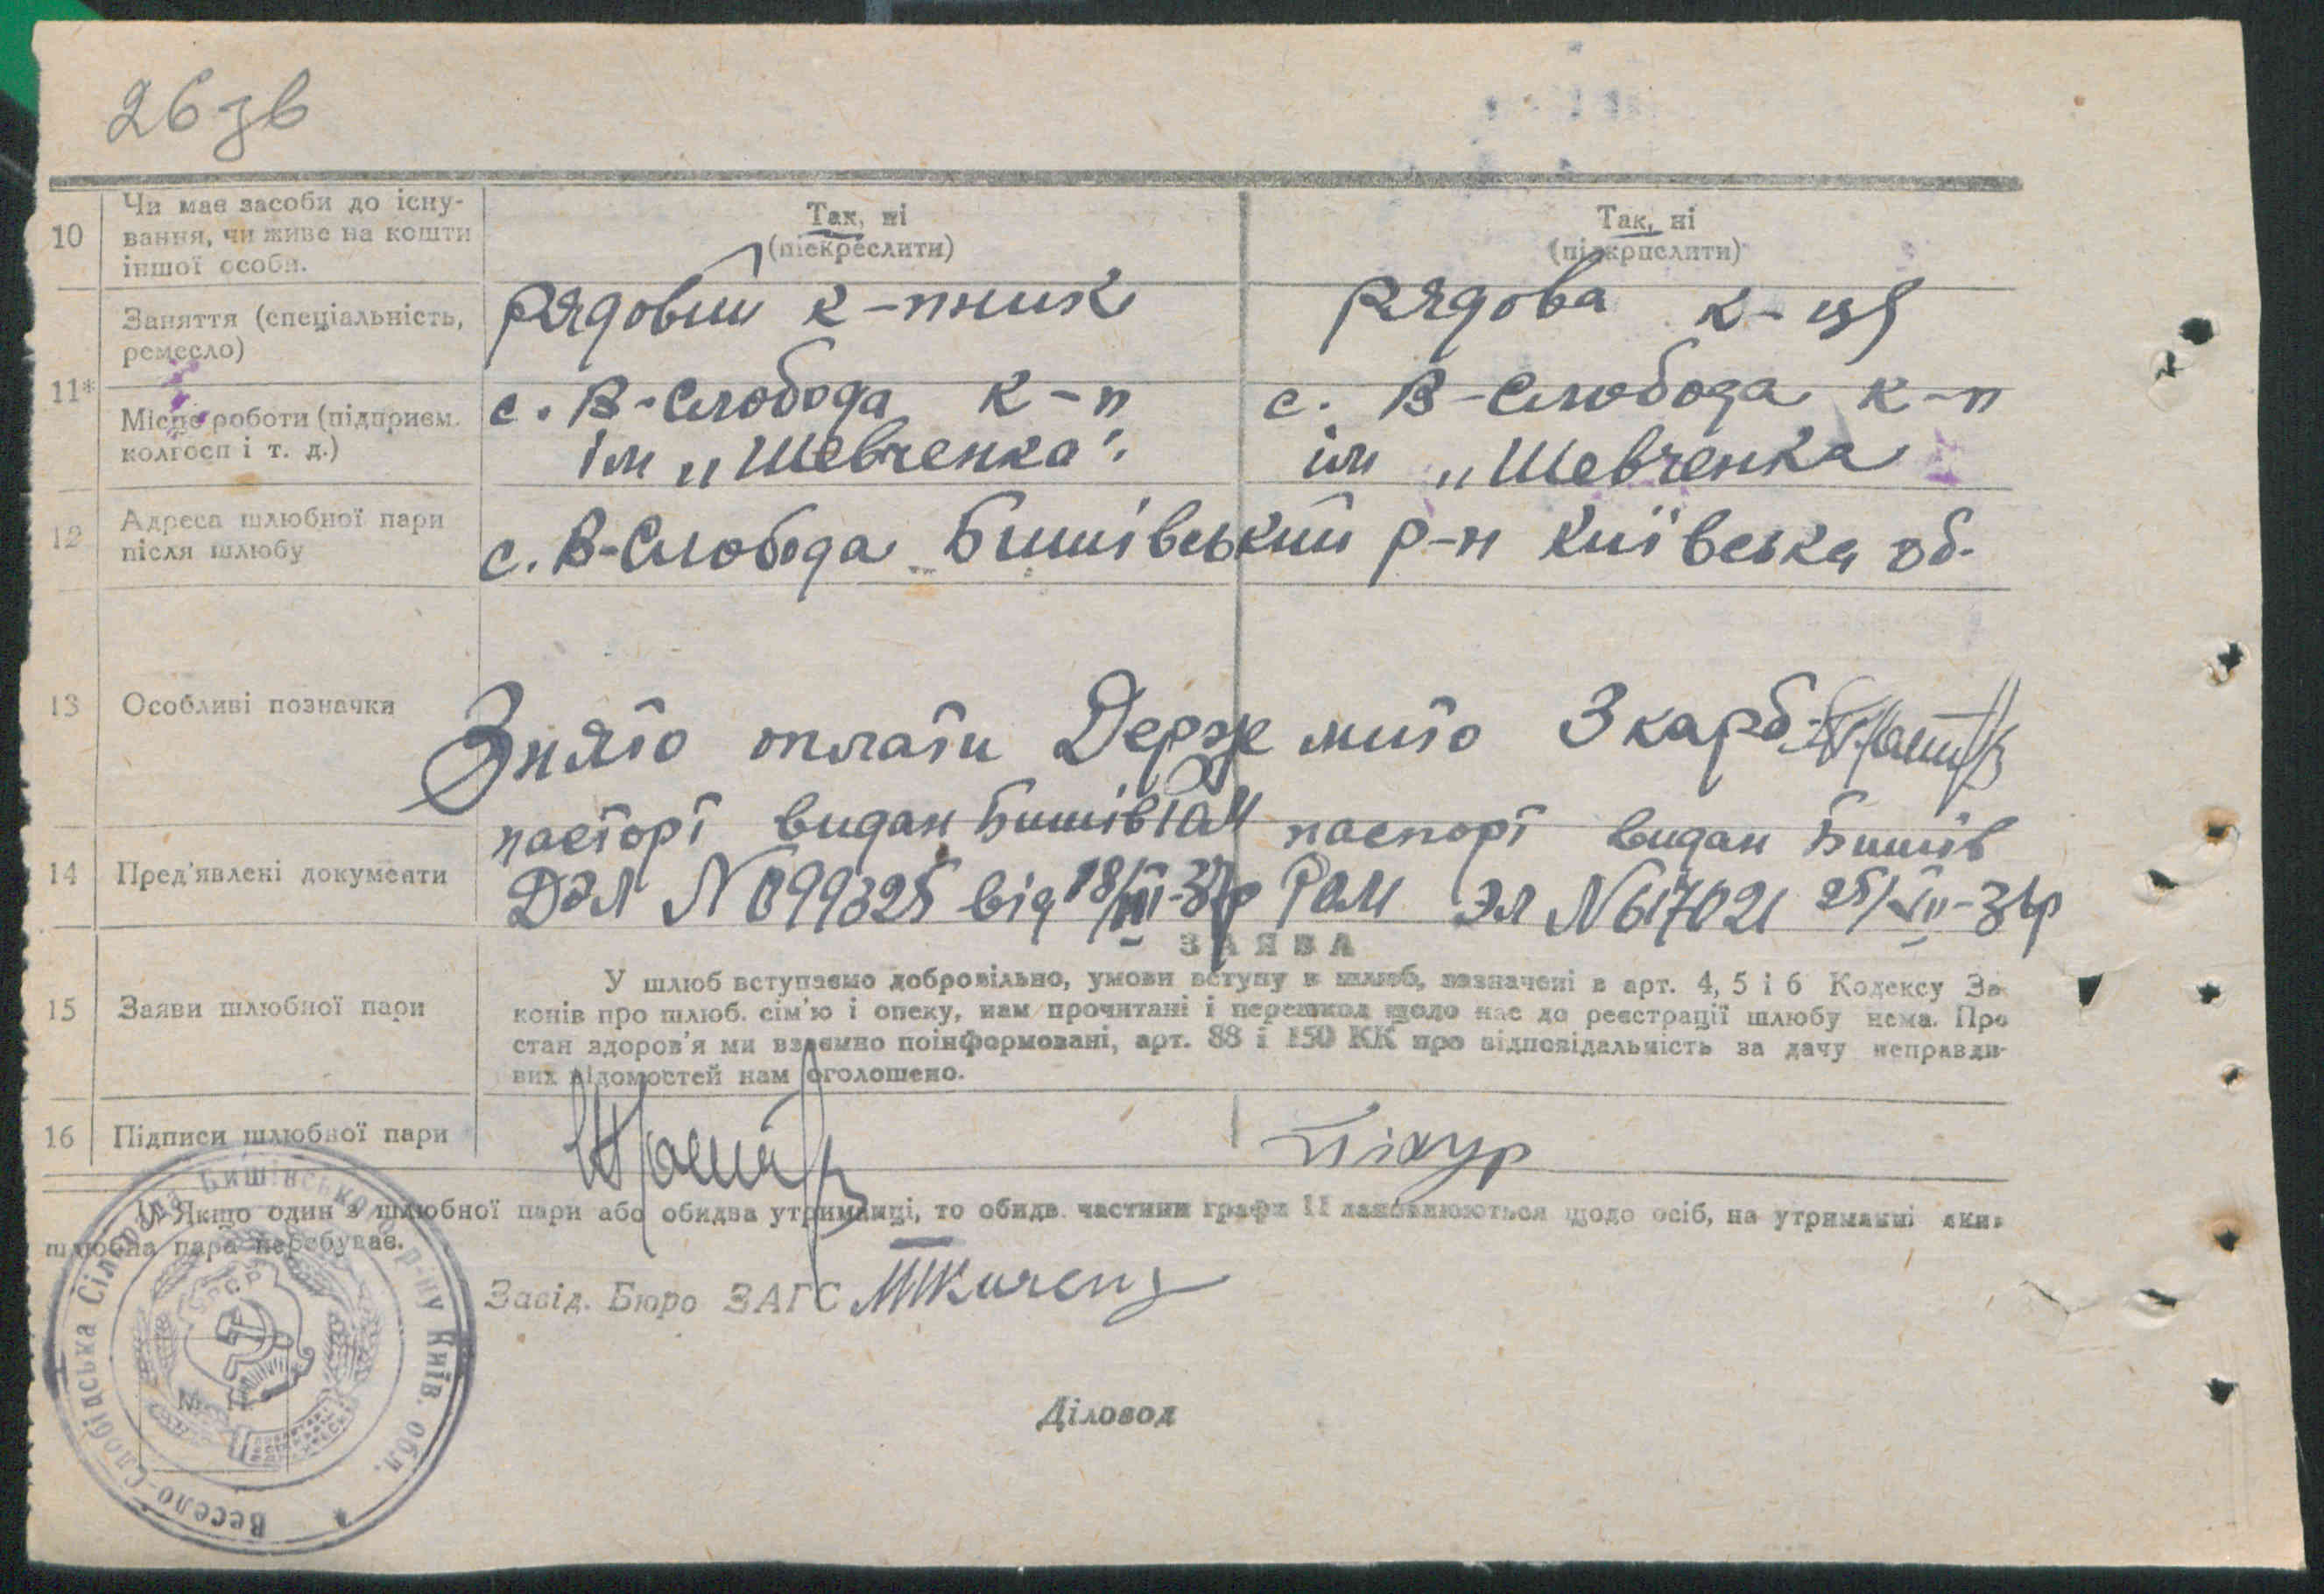 26 зв
10 Чи має засоби до існу-
вання, чи живе на кошти
іншої особи.
Так, ні
(піскреслити)
Так, ні
(підкрпслити)
11*
Заняття (спеціальність,
ремесло)
рядовий к-пник
рядова к-ця
Місце роботи (підприєм.
колгосп і т. д.)
с. В-Слобода к-п
ім „Шевченка".
с. В-Слобода к-п
ім „Шевченка
12 Адреса шлюбної пари
після шлюбу
с. В-Слобода Бишівський р-н Київська об.
13 Особливі позначки
Знято оплати Держ мито 3 карб.
14 Пред'явлені документи
паспорт видан Бишів РОМ
№ 099325 від 18/
паспорт видан Бишів
РОМ ЭЛ № 617021 25/
15 Заяви шлюбної пари
ЗАЯВА
У шлюб вступаємо добровільно, умови вступу в шлюб, зазначені в арт. 4, 5 і 6 Кодексу За-
конів про шлюб. сім'ю і опеку, нам прочитані і перешкод щодо нас до реєстрації шлюбу нема. Про
стан здоров'я ми взаємно поінформовані, арт. 88 і 150 КК про відповідальність за дачу неправди-
вих відомостей нам оголошено.
16 Підписи шлюбної пари
Якщо один з шлюбної пари або обидва утриманці, то обидв. частини графи 11 заповнюються щодо осіб, на утриманні яких
шлюбна пара перебуває.
Завід. Бюро ЗАГС
Діловод
Весело-Слобідська Сільрада Бишівського р-ну Київ. обл.
УРСР
№